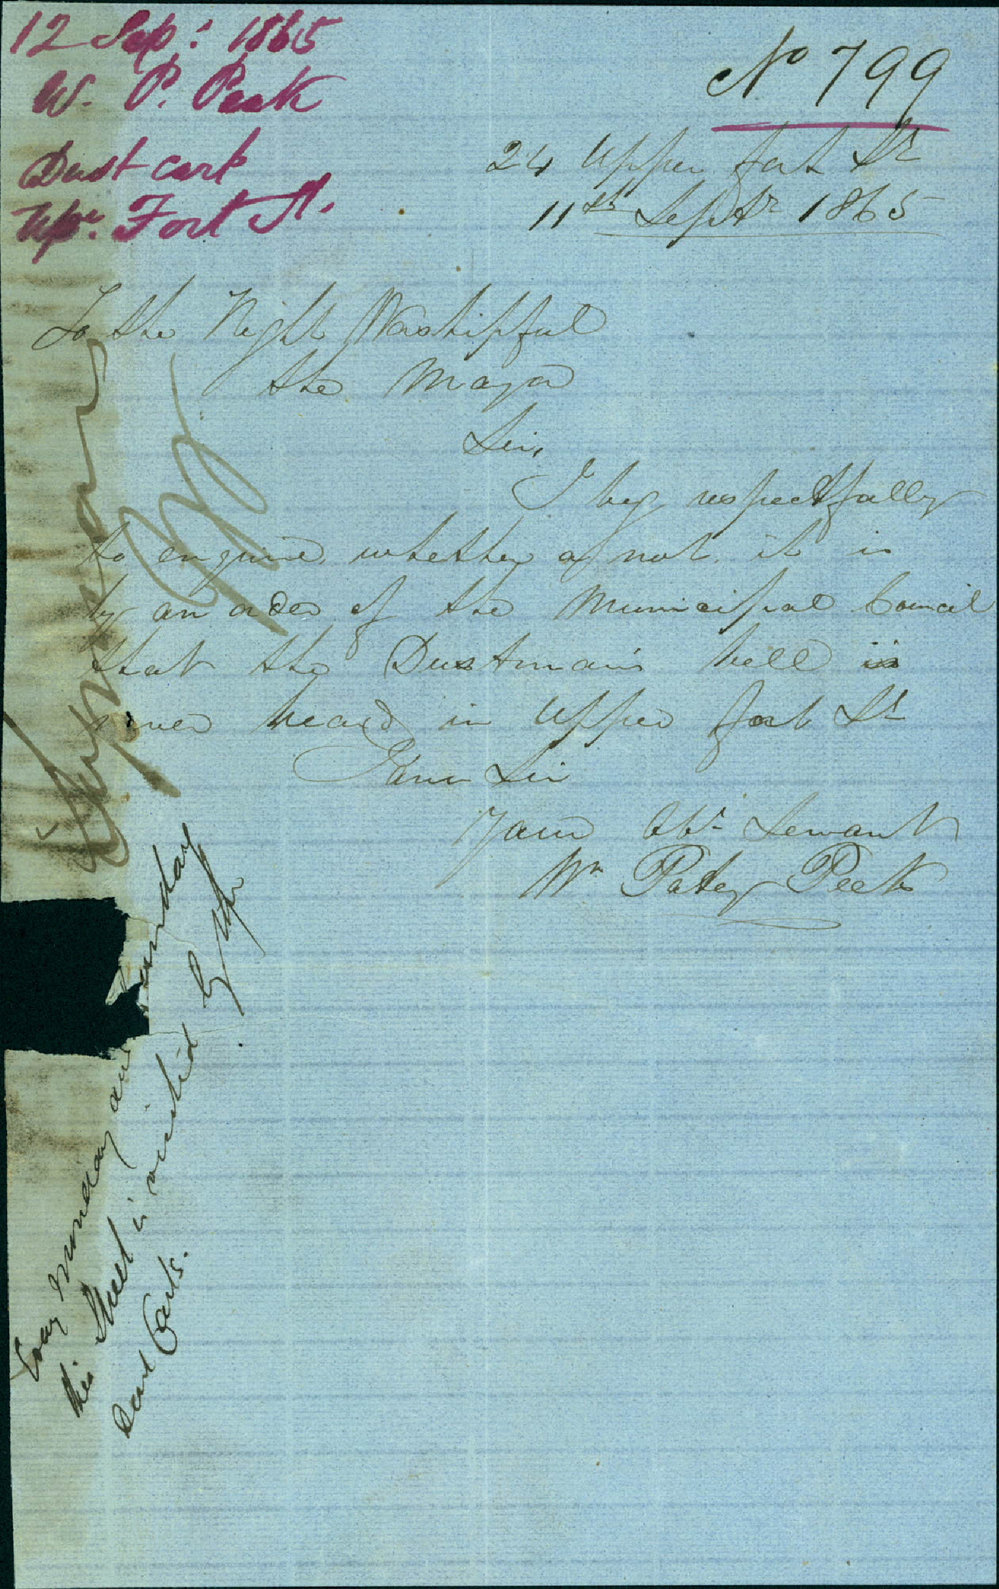 12 Sep: 1865
W. P. Peek
Dust cart
Upr. Fort St.
No 799
24 Upper fort St
11th Septr 1865
To the Right Worshipful
the Mayor
Sir,
I beg respectfully
to enquire whether or not it is
by an order of the Municipal Council
that the Dustman's bell is
never heard in Upper fort St
I am Sir
Your Obt Servant
Wm Patey Peek
Surveyor
Every Monday and Thursday
this Street is visited by the
Dust Carts.